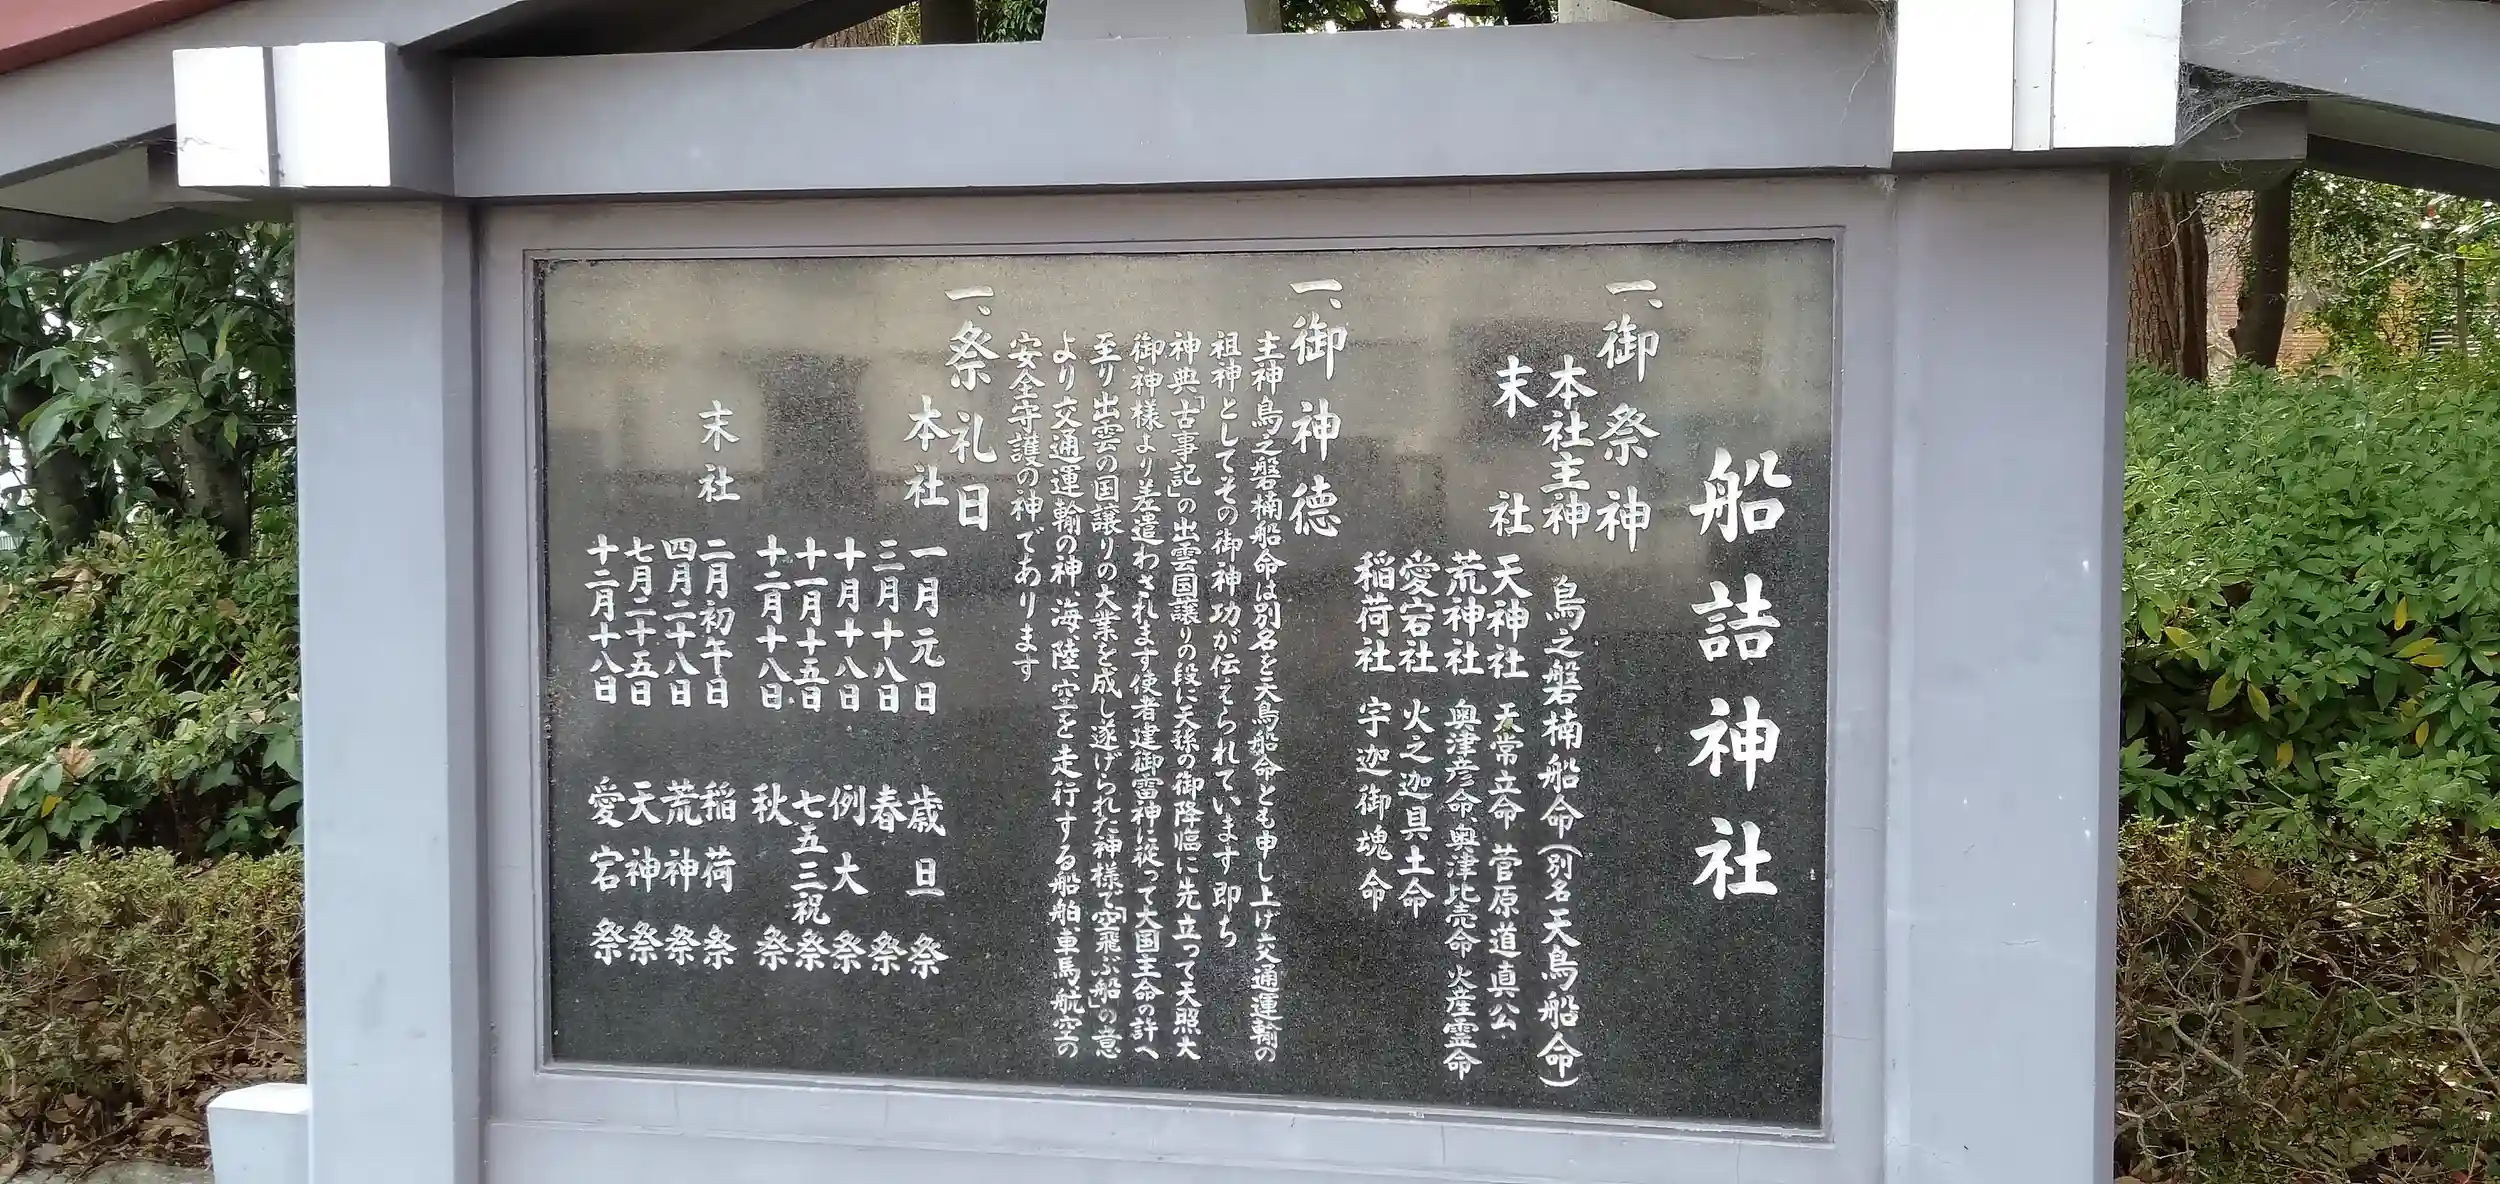 船詰神社
一、御祭神
本社主神 鳥之磐楠船命(別名天鳥船命)
末社 天神社 天常立命 菅原道真公
荒神社 奥津彦命、奥津比売命 火産霊命
愛宕社 火之迦具土命
稲荷社 宇迦御魂命
一、御神徳
主神鳥之磐楠船命は別名を天鳥船命とも申し上げ交通運輸の
祖神としてその御神功が伝えられています即ち
神典「古事記」の出雲国譲りの段に天孫の御降臨に先立って天照大
御神様より差遣わされます使者建御雷神に従って大国主命の許へ
至り出雲の国譲りの大業を成し遂げられた神様で「空飛ぶ船」の意
より交通運輸の神、海、陸、空を走行する船舶、車馬、航空の
安全守護の神であります
一、祭礼日
本社 一月元日 歳旦祭
三月十八日 春祭
十月十八日 例大祭
十一月十五日 七五三祝祭
十二月十八日 秋祭
末社 二月初午日 稲荷祭
四月二十八日 荒神祭
七月二十五日 天神祭
十二月十八日 愛宕祭